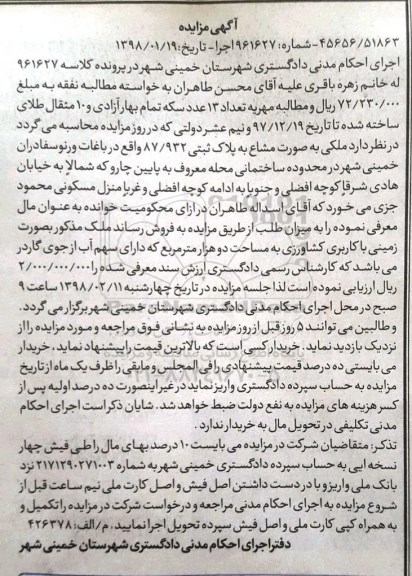 آگهی مزایده
۴۵۶۵۶/۵۱۸۶۳-شماره: ۹۶۱۶۲۷اجرا- تاریخ:۱۳۹۸/۰۱/۱۹
اجرای احکام مدنی دادگستری شهرستان خمینی شهر در پرونده کلاسه ۹۶۱۶۲۷
له خانم زهره باقری علیه آقای محسن طاهران به خواسته مطالبه نفقه به مبلغ
۷۲/۲۳۰/۰۰۰ ریال و مطالبه مهریه تعداد۱۳عدد سکه تمام بهارآزادی و۱۰مثقال طلای
ساخته شده تا تاریخ ۹۷/۱۲/۱۹ و نیم عشر دولتی که در روز مزایده محاسبه می گردد
در نظر دارد ملکی به صورت مشاع به پلاک ثبتی ۸۷/۹۳۲ واقع در باغات ورنوسفادران
خمینی شهر در محدوده ساختمانی محله معروف به پایین چارو که شمالا به خیابان
هادی شرقا کوچه افضلی و جنوبا به ادامه کوچه افضلی و غربا منزل مسکونی محمود
جزی می خورد که آقای اسداله طاهران در ازای محکومیت خوانده به عنوان مال
معرفی نموده را به میزان طلب از طریق مزایده به فروش رساند ملک مذکور بصورت
زمینی با کاربری کشاورزی به مساحت دو هزار مترمربع که دارای سهم آب از جوی گاردر
می باشد که کارشناس رسمی دادگستری ارزش سند معرفی شده را۲/۰۰۰/۰۰۰/۰۰۰
ریال ارزیابی نموده است لذا جلسه مزایده در تاریخ چهارشنبه ۱۳۹۸/۰۲/۱۱ ساعت ۹
صبح در محل اجرای احکام مدنی دادگستری شهرستان خمینی شهر برگزار می گردد.
و طالبین می توانند ۵ روز قبل از روز مزایده به نشانی فوق مراجعه و مورد مزایده را از
نزدیک بازدید نماید. خریدار کسی است که بالاترین قیمت را پیشنهاد نماید، خریدار
می بایستی ده درصد قیمت پیشنهادی را فی المجلس و مابقی را ظرف یک ماه از تاریخ
مزایده به حساب سپرده دادگستری واریز نماید در غیر اینصورت ده درصد اولیه پس از
کسر هزینه های مزایده به نفع دولت ضبط خواهد شد. شایان ذکر است اجرای احکام
مدنی تکلیفی در تحویل مال به خریدار ندارد.
تذکر: متقاضیان شرکت در مزایده می بایست ۱۰درصد بهای مال را طی فیش چهار
نسخه ایی به حساب سپرده دادگستری خمینی شهر به شماره ۲۱۷۱۲۹۰۲۷۱۰۰۳ نزد
بانک ملی واریز و با در دست داشتن اصل فیش و اصل کارت ملی نیم ساعت قبل از
شروع مزایده به اجرای احکام مدنی مراجعه و درخواست شرکت در مزایده را تکمیل و
به همراه کپی کارت ملی و اصل فیش سپرده تحویل اجرا نمایید. م/الف: ۴۲۶۳۷۸
دفتر اجرای احکام مدنی دادگستری شهرستان خمینی شهر